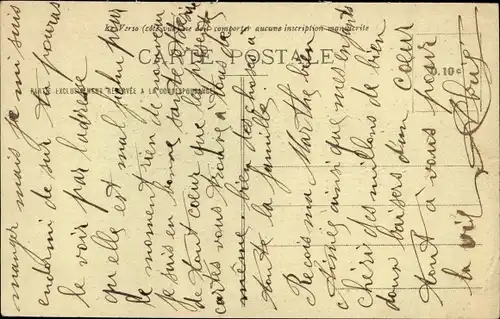 Le Verso (côté vue) ne doit comporter aucune inscription manuscrite
CARTE POSTALE
PARTIE EXCLUSIVEMENT RÉSERVÉE A LA CORRESPONDANCE
manger mais je me suis
endormi de sur tu pouras
le voir par ladresse
qu'elle est mal pour
de moment rien de nouveau
je suis en bonne santé
de tout coeur que la présente
cartes vous trouve a tous de
même bien des choses a
toute la famille
Reçois ma Marthe bien
Aimée ainsi que mes enfants
Chéri des millons de bien
doux baisers d'un coeur
tout a vous pour
la vie
0.10c